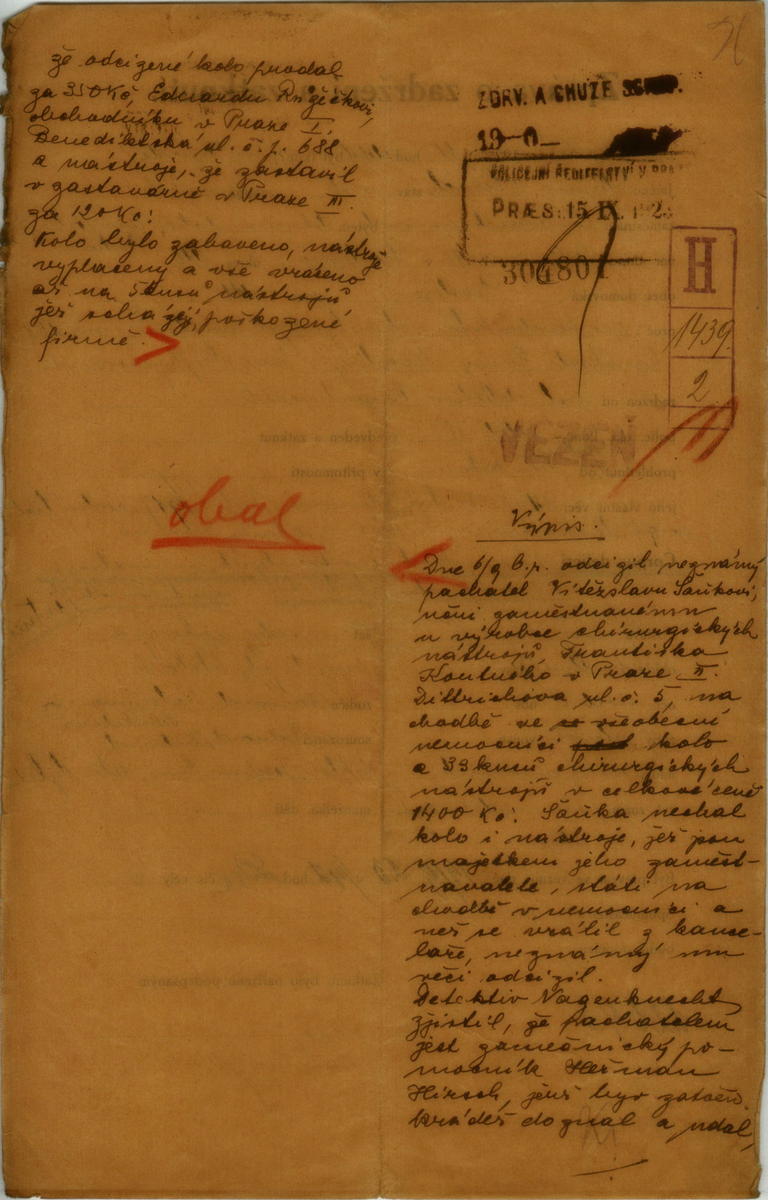 že odcizené kolo prodal
za 350 Kč, Eduardu Růžičkovi,
obchodníku v Praze I.
Benediktská ul. č. p. 688
a nástroje, že zastavil
v zastavárně v Praze III.
za 120 Kč.
Kolo bylo zabaveno, nástroje
vyplaceny a vše vráceno
až na 5 kusů nástrojů
jež scházejí, poškozené
firmě.
obal
ZDRV. A CHUZE
19-0-
POLICEJNÍ ŘEDITELSTVÍ V PRA
PRÆS: 15 IX. 192
304801
H
1439
2
VĚZEŇ
Výpis.
Dne 6/9 b.r. odcizil neznámý
pachatel Vítězslavu Šaškovi,
učni zaměstnanému
u výrobce chirurgických
nástrojů, Františka
Koutného v Praze II.
Dittrichova ul. č. 5, na
chodbě ve všeobecné
nemocnici kolo
a 39 kusů chirurgických
nástrojů v celkové ceně
1400 Kč. nechal
kolo i nástroje, jež jsou
majetkem jeho zaměst-
navatele, státi na
chodbě v nemocnici a
než se vrátil z kance-
láře, neznámý mu
věci odcizil.
Detektiv Vagenknecht
zjistil, že pachatelem
jest zámečnický po-
mocník Heřman
Hirsch, jenž byv zatčen
krádež doznal a udal,